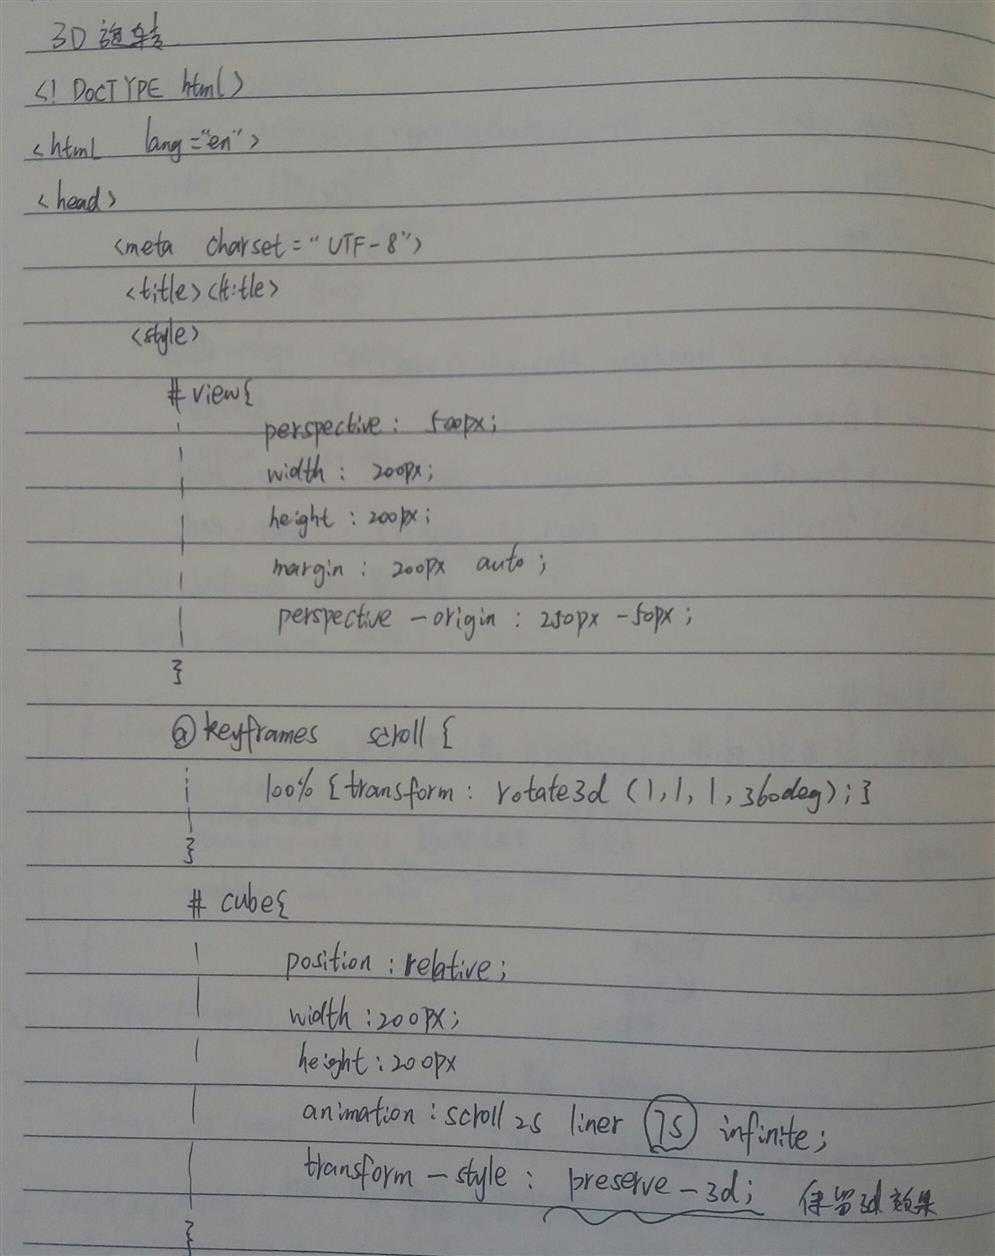 3D 旋转
<! DOCTYPE html>
<html lang="en">
<head>
<meta charset="UTF-8">
<title></title>
<style>
# view{
perspective: 500px;
width: 200px;
height: 200px;
margin: 200px auto;
perspective-origin: 250px -50px;
}
@keyframes scroll {
100% {transform: rotate3d (1,1,1,360deg);}
}
# cube{
position: relative;
width: 200px;
height: 200px
animation: scroll 2s liner 1s infinite;
transform-style: preserve-3d; 保留3d效果
}